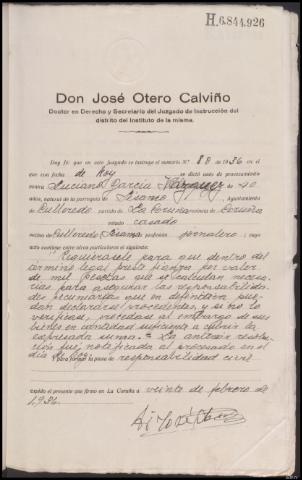 H.6.844.926
Don José Otero Calviño
Doctor en Derecho y Secretario del Juzgado de Instrucción del
distrito del Instituto de la misma.
Doy fe: que en este juzgado se instruye el sumario N.º 88 de 1936 en el
que con fecha de hoy se dictó auto de procesamiento
contra Luciano García Vázquez de 40
años, natural de la parroquia de Ayuntamiento
de Culleredo partido de La Coruña provincia de Coruña
estado casado
vecino de Culleredo profesión jornalero; cuyo
auto contiene entre otros particulares el siguiente:
Requiérasele para que dentro del
término legal preste fianza por valor
de mil pesetas que se calculan necesa-
rias para asegurar las responsabilida-
des pecuniarias que en definitiva pue-
dan declararse procedentes, y si no lo
verificase, procédase al embargo de sus
bienes en cantidad suficiente a cubrir la
expresada suma.= La anterior resolu-
ción fué notificada al procesado en el
día de hoy.
Y para formar la pieza de responsabilidad civil
expido el presente que firmo en La Coruña a veinte de febrero de
1.936.